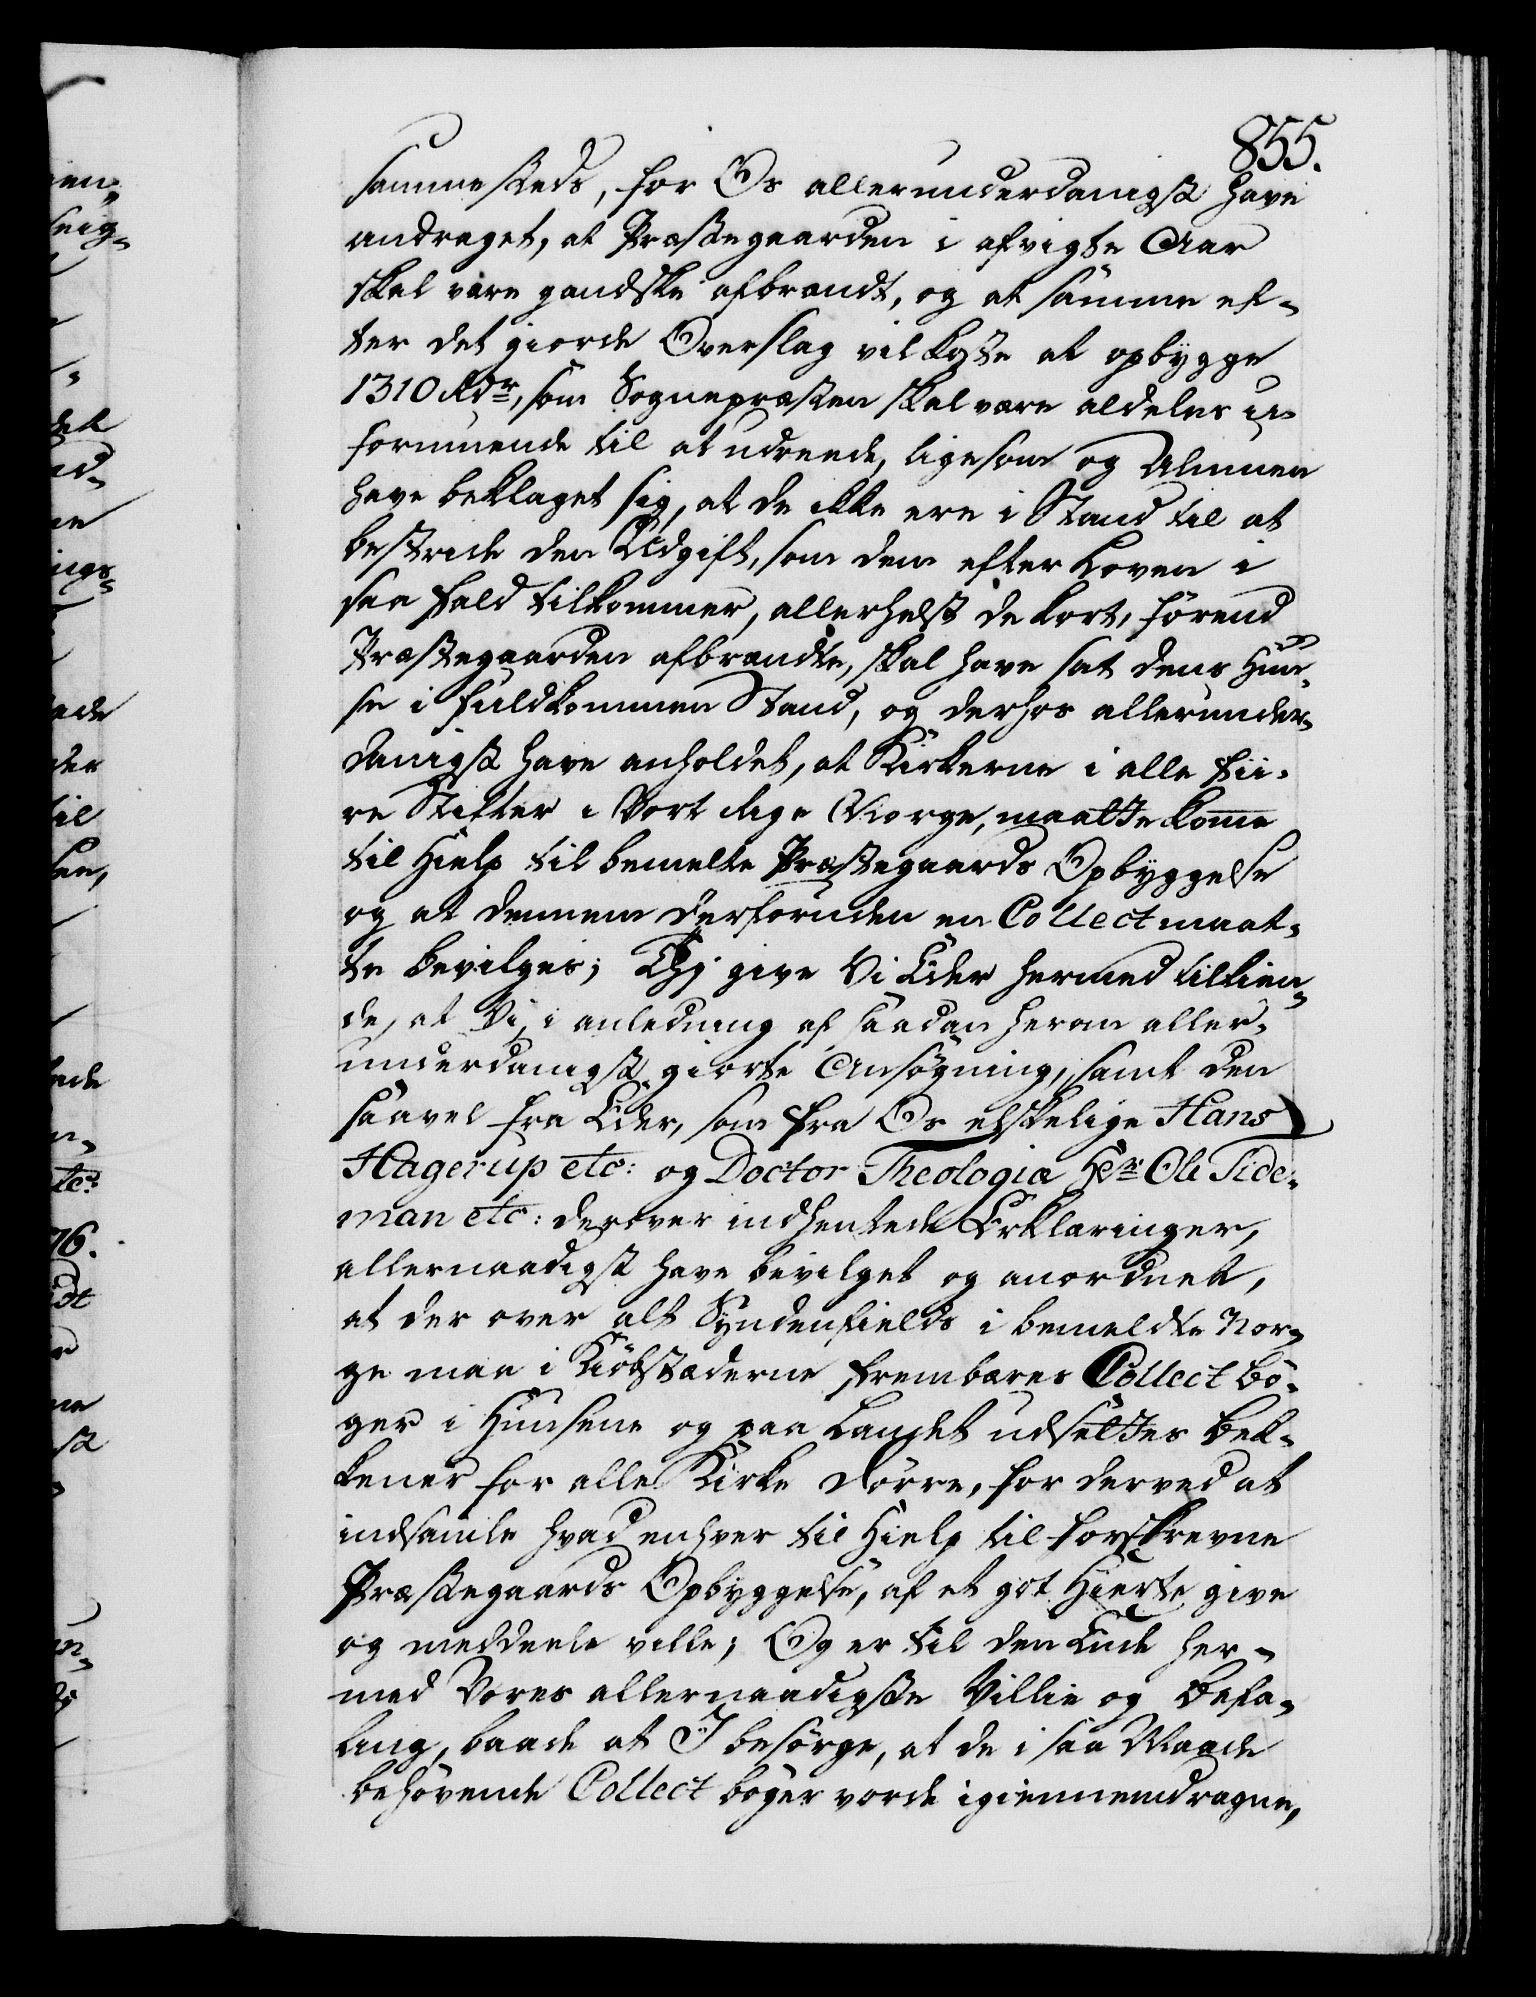 855.
sammesteds, for Os allerunderdanigst have
andraget, at Præstegaarden i afvigte Aar
skal være gandske afbrændt, og at samme ef-
ter det giorde Overslag vil koste at opbygge
1310 Rdr, som Sognepræsten skal være aldeles u-
formuende til at udreede, ligesom og Almuen
have beklaget sig, at de ikke ere i Stand til at
bestride den Udgift, som dem efter Loven i
saa Fald tilkommer, allerhelst de kort, førend
Præstegaarden afbrændte, skal have sat dens Huu-
se i fuldkommen Stand, og derhos allerunder-
danigst have anholdet, at Kirkerne i alle fii-
re Stifter i Vort Rige Norge, maatte komme
til Hielp til bemelte Præstegaards Opbyggelse
og at dennem desforuden en Collect maat-
te bevilges; Thj give Vi Eder hermed tilkien-
de, at Vi, i anledning af saadan herom aller-
underdanigst giorte Ansøgning, samt den
saavel fra Eder, som fra Os elskelige Hans
Hagerup etc: og Doctor Theologiæ Hr Ole Tide-
man etc: derover indhentede Erklæringer,
allernaadigst have bevilget og anordnet,
at der over alt Syndenfields i bemeldte Nor-
ge maa i Kiøbstæderne frembæres Collect bø-
ger i Huusene og paa Landet udsættes Bek-
kener for alle Kirke Dørre, for derved at
indsamle hvad enhver til Hielp til forskrevne
Præstegaards Opbyggelse, af et got Hierte give
og meddeele ville; Og er til den Ende her-
med Vores allernaadigste Villie og Befa-
ling, baade at I besørge, at de i saa Maade
behøvende Collect bøger vorde igiennemdragne,